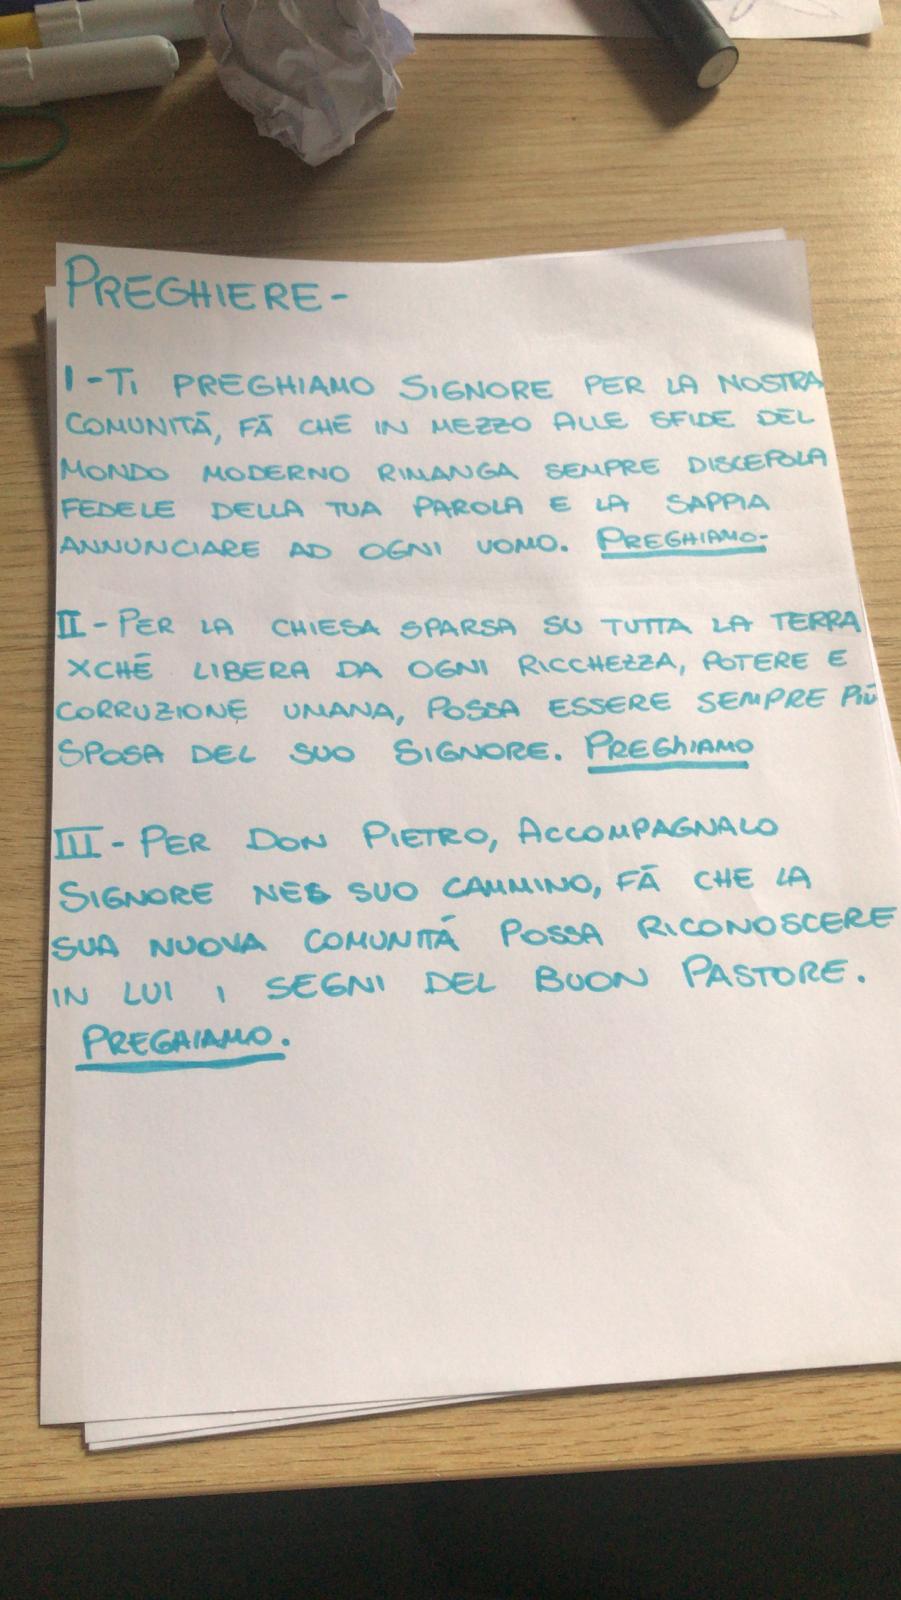 PREGHIERE-
I - TI PREGHIAMO SIGNORE PER LA NOSTRA
COMUNITÀ, FÀ CHÈ IN MEZZO ALLE SFIDE DEL
MONDO MODERNO RIMANGA SEMPRE DISCEPOLA
FEDELE DELLA TUA PAROLA E LA SAPPIA
ANNUNCIARE AD OGNI UOMO. PREGHIAMO-
II - PER LA CHIESA SPARSA SU TUTTA LA TERRA
XCHÈ LIBERA DA OGNI RICCHEZZA, POTERE E
CORRUZIONE UMANA, POSSA ESSERE SEMPRE PIÙ
SPOSA DEL SUO SIGNORE. PREGHIAMO
III - PER DON PIETRO, ACCOMPAGNALO
SIGNORE NEL SUO CAMMINO, FÀ CHE LA
SUA NUOVA COMUNITÀ POSSA RICONOSCERE
IN LUI I SEGNI DEL BUON PASTORE.
PREGHIAMO.